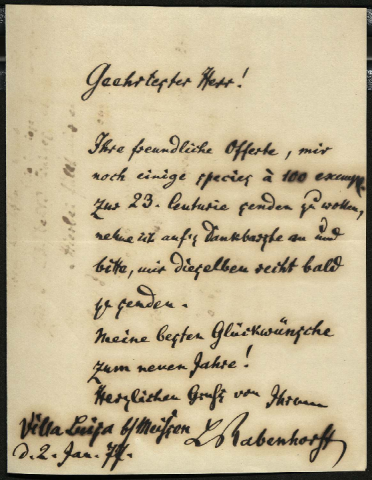 Geehrtester Herr!
Ihre freundliche Offerte, mir
noch einige species à 100 exempl.
zur 23. Centurie senden zu wollen,
nehme ich auf's Dankbarste an und
bitte, mir dieselben recht bald
zu senden.
Meine besten Glückwünsche
zum neuen Jahre!
Herzlichen Gruss von Ihrem
Villa Luisa b/Meissen L Rabenhorst
d. 2. Jan. 77.